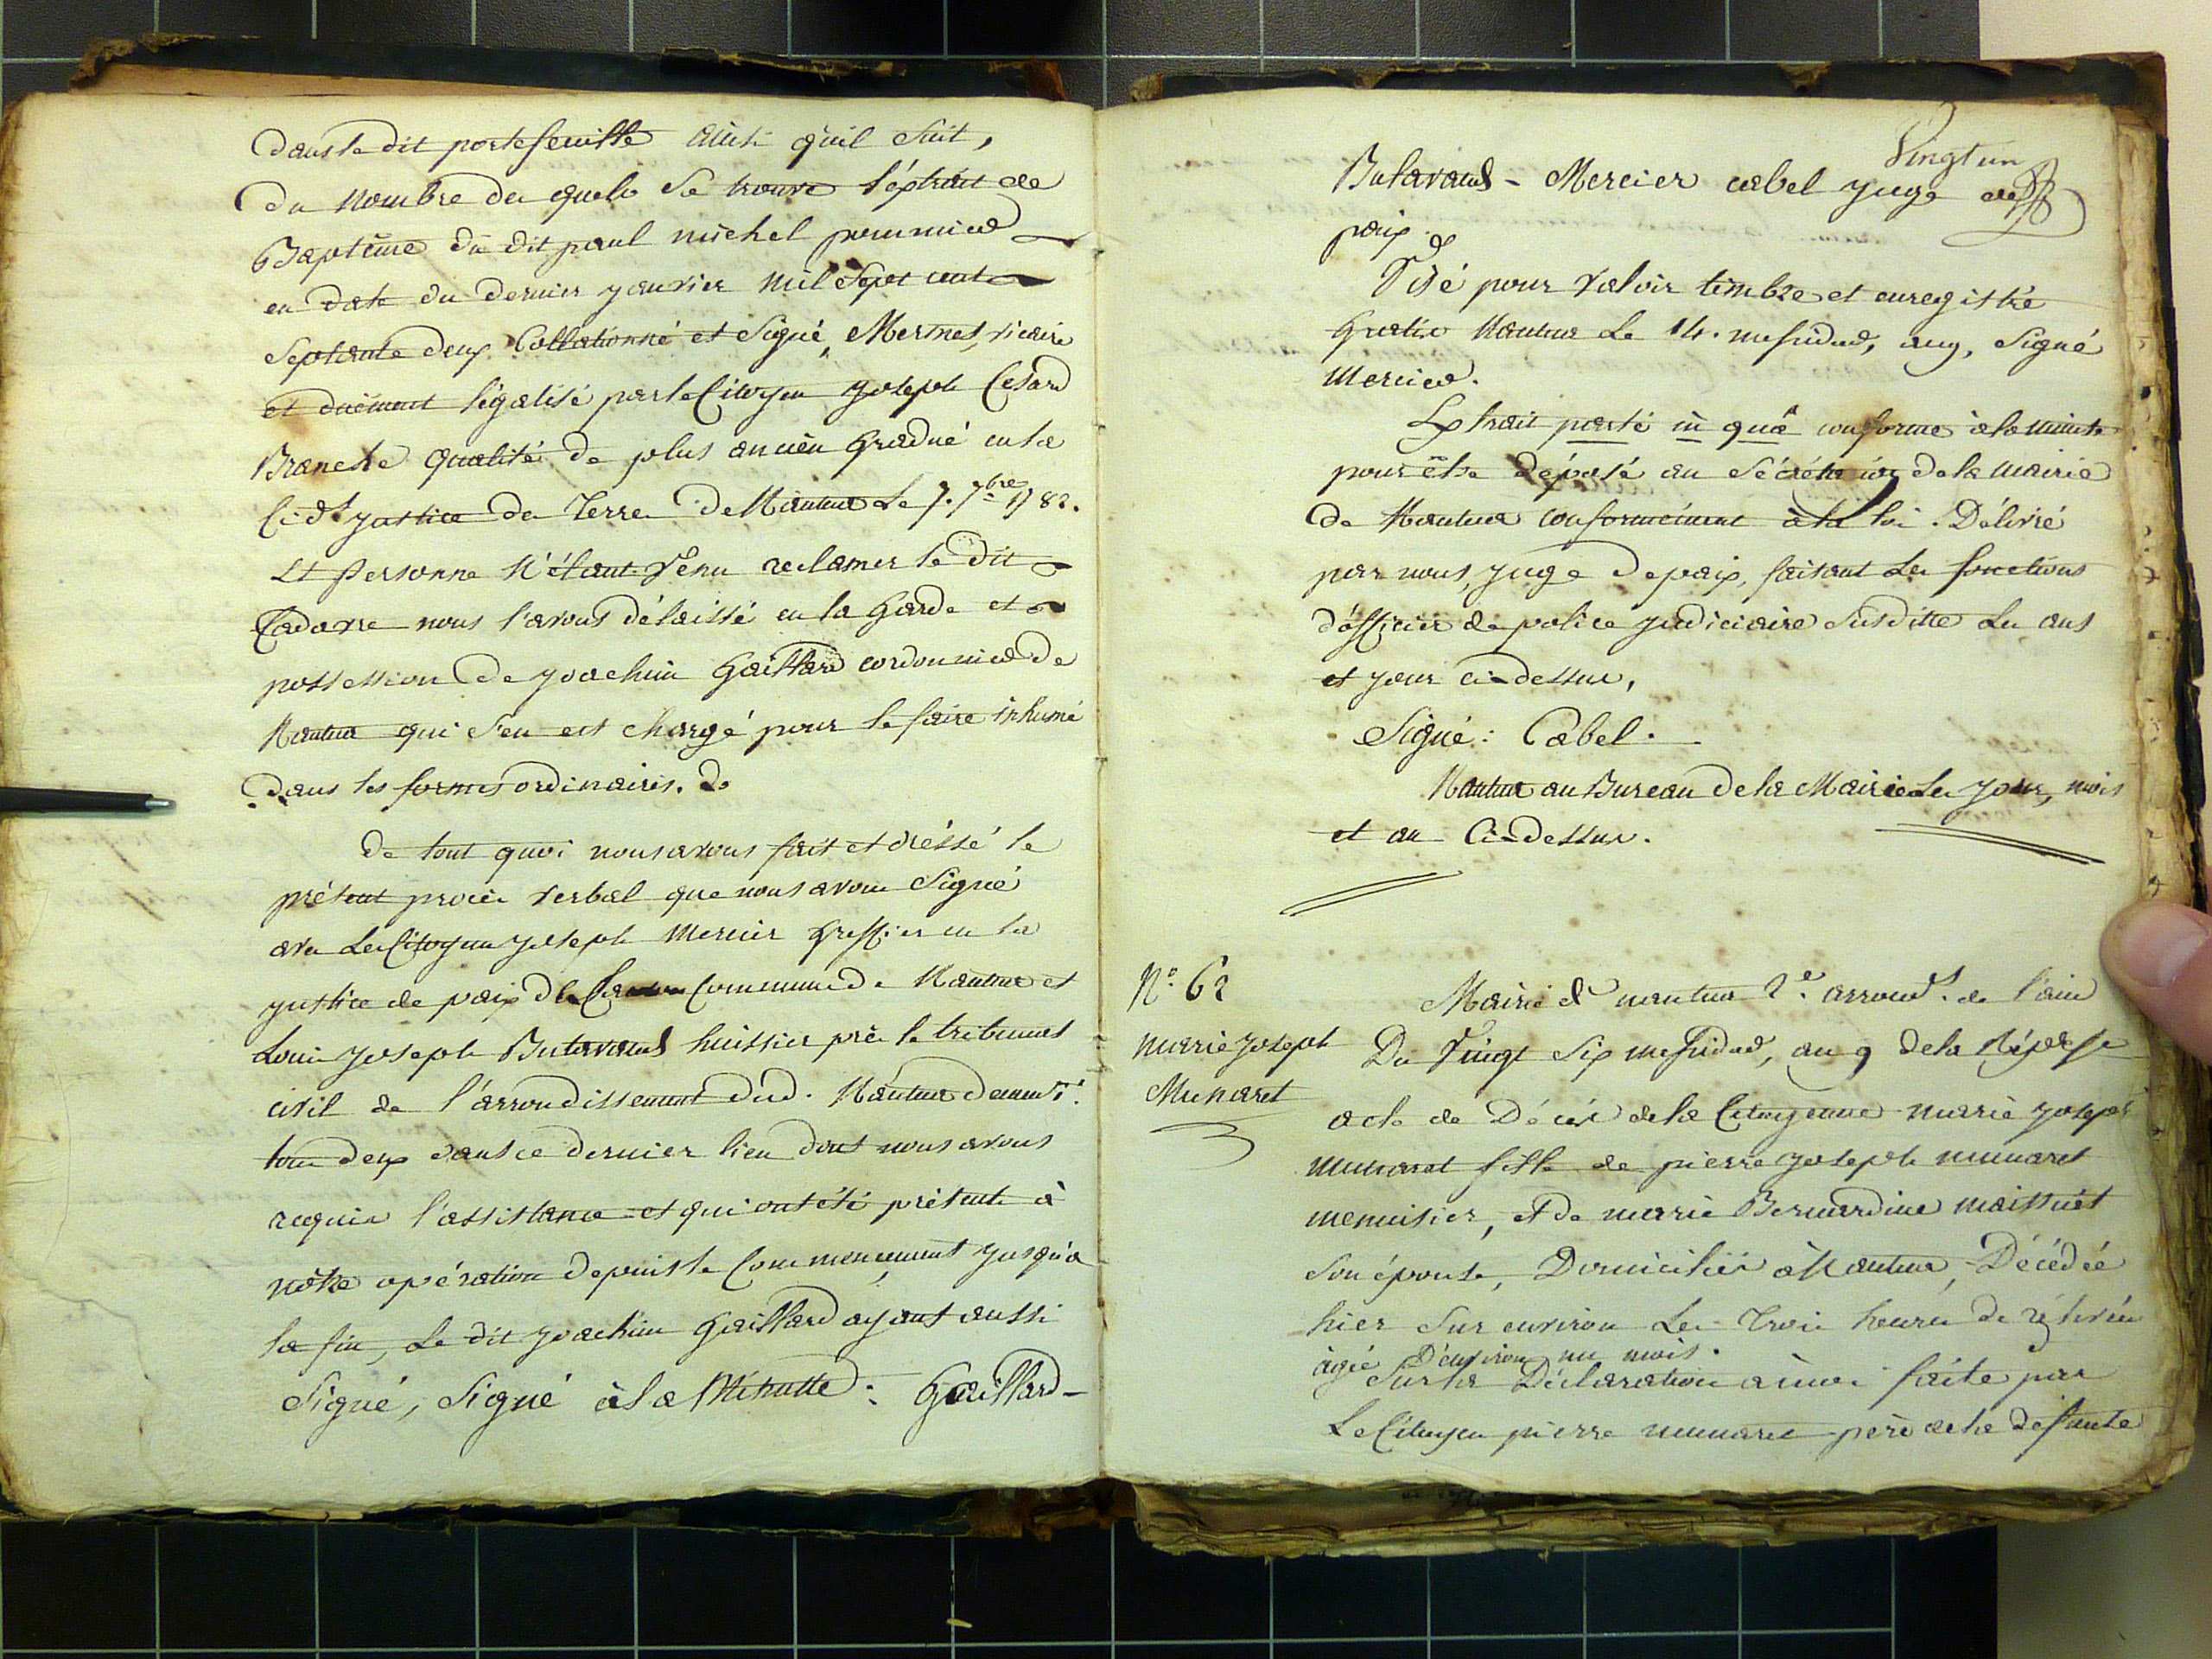 dans le dit portefeuille ainsi qu'il suit,
du nombre des quels se trouve l'éxtrait de
Baptême du dit paul michel pommier
en date du dernier janvier mil sept cent
septante deux Collationné et Signé, Mermes, vicaire
et duëment légalisé par le Citoyen joseph Cesard
Branche qualité de plus ancien Gradué en la
Ci dt justice de Terre de Nantua Le 7. 7bre 1782.
Et personne N'étant Venu reclamer le dit
Cadavre nous l'avons délaissé en la Garde et
possession de joachim Gaillard cordonnier de
Nantua qui s'en est chargé pour le faire inhumé
dans les formes ordinaires.
de tout quoi nous avons fait et dréssé le
présent procès verbal que nous avons Signé
avec Les Citoyens joseph Mercier Greffier en la
justice de paix de la Commune de Nantua et
Louis joseph Butavand huissier près le tribunal
civil de l'arrondissement dud. Nantua demeurt.
tous deux dans ce dernier lieu dont nous avons
requis l'assistance et qui ont été présents à
nôtre opération depuis le Commencement jusqu'a
la fin, Le dit joachim Gaillard ayant aussi
Signé, Signé à la Minutte : Gaillard -
Vingt un
Butavand - Mercier cabel juge de
paix
Visé pour valoir timbre et enregistré
Gratis Nantua Le 14. messidor, an 9, Signé
Mercier.
Extrait parté in quâ conforme à la minute
pour être déposé au Sécrétariat de la Mairie
de Nantua conformément à la loi. Délivré
par nous, juge de paix, faisant Les fonctions
d'officier de police judiciaire Susditte Les ans
et jour ci-dessus,
Signé : Cabel.
Nantua au Bureau de la Mairie Les jour, mois
et an Ci-dessus.
N° 62
marie joseph
Munaret
Mairie de nantua 2e. arrondt. de l'ain
Du Vingt Six messidor, an 9 de la Répe fse
acte de Décès de la Citoyenne marie joseph
munaret fille de pierre joseph munaret
menuisier, et de marie Bernardine maissiat
son épouse, Domiciliés à Nantua, Décédée
hier sur environ Les Trois heures de rélevée
âgée d'environ un mois.
Sur la Déclaration à moi faite par
Le Citoyen pierre munaret père de la défunte